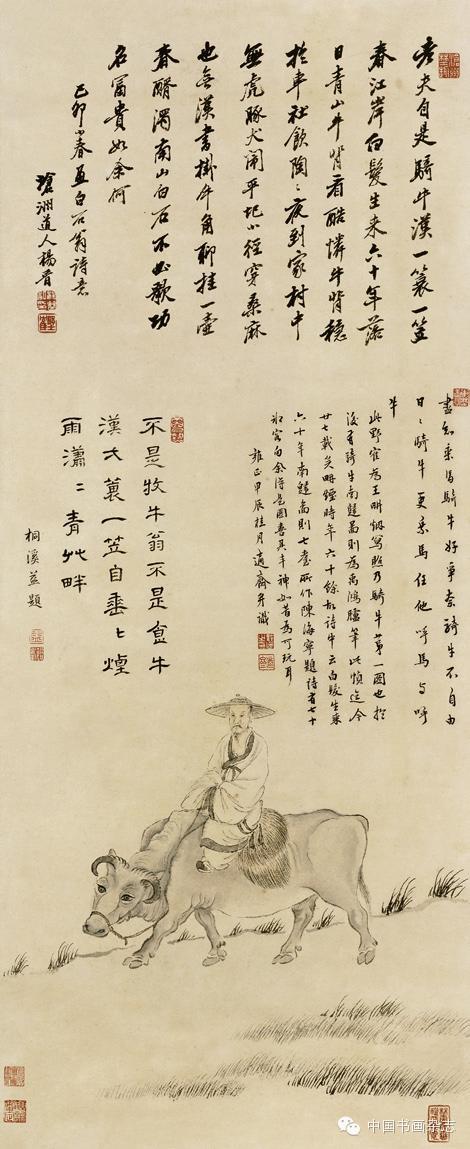 老夫自是騎牛漢一蓑一笠
春江岸白髮生来六十年落
日青山牛背看酷憐牛背穩
於車社飲陶々夜到家村中
無虎豚犬闹平圯小徑穿桑麻
也無漢書掛牛角聊挂一壺
春醑濁南山白石不必歌功
名富貴如余何
己卯小春畫白石翁詩意
瑲洲道人楊晋
盡知乘馬騎牛好爭奈騎牛不自由
日々騎牛更乘馬任他呼馬与呼
牛
此野鶴為王畊烟寫照乃騎牛第一圖也於
後有騎牛南
為禹鴻臚筆此幀迄今
廿七載矣畊煙時年六十餘故詩中云白髮生来
六十年南
則七耋所作陳海寧題詩有七十
余得是圖喜其丰神如昔為可玩耳
雍正甲辰桂月適齋并識
不是牧牛翁不是飯牛
漢大蓑一笠自垂乀煙
雨瀟二青艸畔
桐溪益題
中国书画杂志